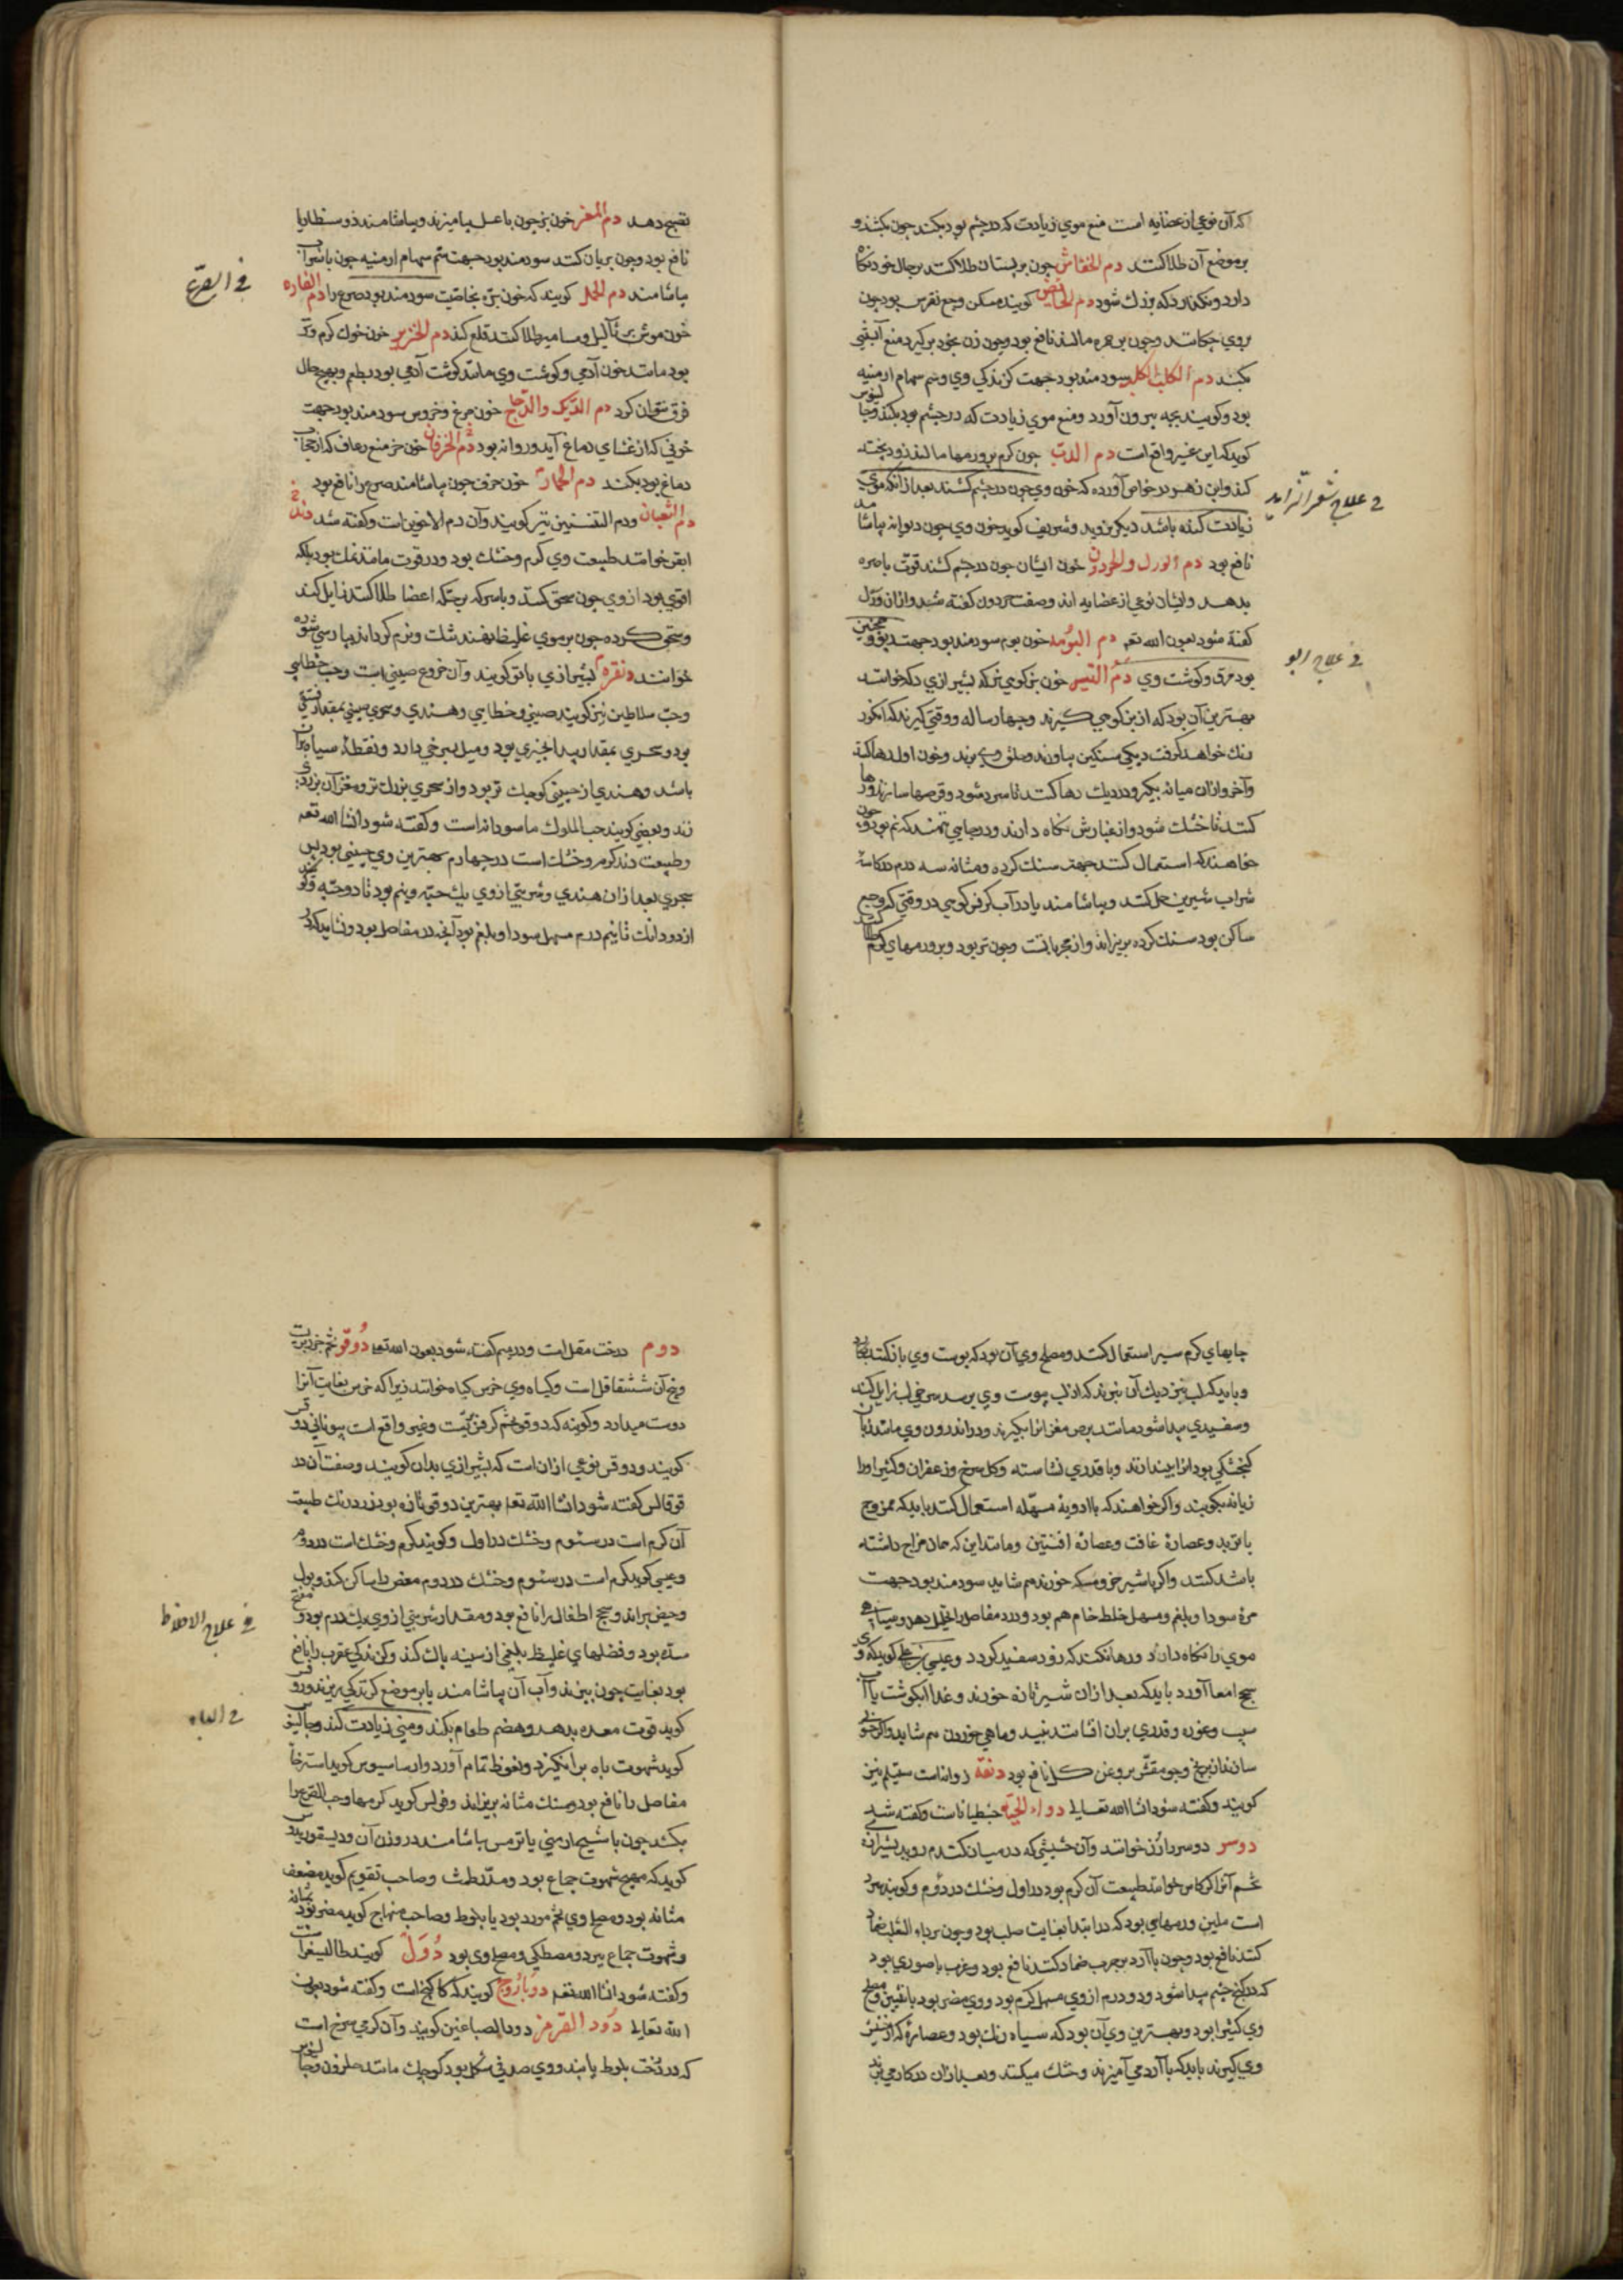 که آن نوعی از عضایه است منع موی زیادت که در چشم بود بکند چون بکشند و
بر موضع آن طلا کنند دم الخفاش چون بر پستان طلا کنند بر حال خود نکاه
دارد ونکذارد که بزرك شود دم الحایض کویند مسکن وجع نقرس بود چون
بروی چکانند وچون بر بهره مالند نافع بود وچون زن بخود برکیرد منع آبستنی
بکند دم الکلب الکلب سودمند بود جهت کزندکی وی وسم سهام ارمنیه
بود وکویند بچه بیرون آورد ومنع موی زیادت که در چشم بود بکند وجالینوس
کوید که این غیر واقع است دم الدب چون کرم بر ورمها مالند زود پخته
کند وابن زهر در خواص آورده که خون وی چون در چشم کشند بعد از آنکه موی
في علاج شعر الزاید
زیادت کنده باشد دیکر نروید وشریف کوید خون وی چون دیوانه بیاشامد
نافع بود دم الورل والحردون خون ایشان چون در چشم کشند قوت باصره
بدهد وایشان نوعی از عضایه اند وصفت حردون کفته شد واز آن ورل
کفته شود بعون الله تعم دم البومه خون بوم سودمند بود جهت ربو وهمچنین
في علاج الربو
بود مرق وکوشت وی دم التیس خون بز کوهی نر که بشیرازی دکه خوانند
بهترین آن بود که از بز کوهی کیرند وچهارساله ووقتی کیرند که انکور
رنك خواهد کرفت دیکی سنکین بیاورند وصلق وی ببرند وخون اول رها کنند
وآخر واز آن میانه بیکیرند ودر دیك رها کنند تا سرد شود وقرصها سازند ورها
کنند تا خشك شود واز غبارش نکاه دارند ودر جایی نهند که نم نبود وچون
خواهند که استعمال کنند جهت سنك کرده ومثانه سه درم در کاسهٔ
شراب شیرین حل کنند وبیاشامند یا در آب کرفس کوهی در وقتی که وجع
ساکن بود سنك کرده بریزاند واز مجرباتست وچون تر بود وبر ورمهای کرم طلا کنند
نضج دهد دم المعز خون بز چون با عسل بیامیزند وبیاشامند ذوسنطاریا
نافع بود وچون بریان کنند سودمند بود جهت سم سهام ارمنیه چون با شراب
بیاشامند دم الحمل کویند که خون بره بخاصیت سودمند بود صرع را دم الفاره
في الصرع
خون موش بر ثآلیل ومسامیر طلا کنند قلع کند دم الخنزیر خون خوك کرم وتر
بود مانند خون آدمی وکوشت وی مانند کوشت آدمی بود بطعم وبهیچ حال
فرق نتوان کرد دم الدیك والدجاج خون مرغ وخروس سودمند بود جهت
خونی که از غشای دماغ آید وروانه بود دم الخرفان خون خر منع رعاف که از حجاب
دماغ بود بکند دم الحمار خون خرف چون بیاشامند صرع را نافع بود
دم الثعبان ودم التنین نیز کویند وآن دم الاخوین است وکفته شد دند
ابقر خوانند طبیعت وی کرم وخشك بود ودر قوت مانند نمك بود بلکه
اقوی بود از وی چون سحق کنند وبا سرکه بر حکه اعضا طلا کنند زایل کند
وسحق کرده چون بر موی غلیظ نهند تنك ونرم کرداند بپارسی شوره
خوانند دنقره بشیرازی باتو کویند وآن خروع صینی است وحب خطایی
وحب سلاطین نیز کویند صینی وخطایی وهندی وسحری صینی بمقدار فستق
بود وسحری بمقدار بید انجیری بود ومیل بسرخی دارد ونقطهٔ سیاه بر آن
باشد وهندی از صینی کوچك تر بود واز سحری بزرك تر ومغز آن بزردی
زند وبعضی کویند حب الملوك ماهودانه است وکفته شود انشا الله تعم
وطبیعت دند کرم وخشك است در چهارم بهترین وی چینی بود پس
سجری بعد از آن هندی وشربتی از وی یك حبه ونیم بود تا دو حبه وکویند
از دو دانك تا نیم درم مسهل سودا وبلغم بود آنچه در مفاصل بود ونشاید که در
جایهای کرم سیر استعمال کنند ومصلح وی آن بود که پوست وی باز کنند بکارد
وباید که لب بنزدیك آن نبرند که از لب پوست وی برسد سرخی لب زایل کند
وسفیدی پیدا شود مانند برص مغز آنرا بیکیرند ودر اندرون وی مانند زبان
کنجشکی بود آنرا بیندازند وبا قدری نشاسته وکل سرخ وزعفران وکثیرا او را
زیانه بکویند واکر خواهند که با ادویهٔ مسهله استعمال کنند باید که ممزوج
با تربد وعصارهٔ غافت وعصارهٔ افنتین ومانند این که همان مزاج داشته
باشد کنند واکر با شیر خر ومسکه خورند هم شاید سودمند بود جهت
مرهٔ سودا وبلغم ومسهل خلط خام هم بود ودرد مفاصل را تحلیل دهد وسیاهی
موی را نکاه دارد ورها نکند که زود سفید کردد وعیسی بن علی کوید که وی
سحج امعا آورد باید که بعد از آن شیر تازه خورند وغذا آبکوشت با آب
سیب وغوره وقدری بر آن افشانند نبید وماهی خوردن هم شاید واکر خوابی
سازند از برنج وجو مقشر بروغن کل نافع بود دنقه زوانست سیلم نیز
کویند وکفته شود انشا الله تعالی دواء الحیه جنطیاناست وکفته شد
دوسر دوسر را زن خوانند وآن حشیشی که در میان کندم روید بشیرازی
تخم آنرا کرکاس خوانند طبیعت آن کرم بود در اول وخشك در دوم وکویند سرد
است ملین ورمهایی بود که در ابتدا بغایت صلب بود وچون بر داء الثعلب ضماد
کنند نافع بود وچون با آرد بر جرب ضماد کنند نافع بود وغرب یا صوری بود
که در کنج چشم پیدا شود ودو درم از وی مسهل کرم بود ووی مضر بود بانثیین ومصلح
وی کثیرا بود وبهترین وی آن بود که سیاه رنك بود وعصارهٔ که از حشیش
وی کیرند باید که با آرد می آمیزند وخشك میکنند وبعد از آن در کار می برند
دوم درخت مقل است ودر میم کفته شود بعون الله تعا دوقو تخم جزر بریست
وبیخ آن ششقاقل است وکیاه وی خرس کیاه خوانند زیرا که خرس بغایت آنرا
دوست میدارد وکویند که دوقو تخم کرفس بریست وغیر واقع است بیونانی دوقس
کویند ودوقس نوعی از آن است که بشیرازی بدران کویند وصفت آن در
قوقالس کفته شود انشا الله تعا بهترین دوقو تازه بود زرد رنك طبیعت
آن کرم است در سئوم وخشك در اول وکویند کرم وخشك است در دوم
وعیسی کوید کرم است در سئوم وخشك در دوم مغص را ساکن کند وبول
وحیض براند وسحج اطفال را نافع بود ومقدار شربتی از وی یك درم بود ومفتح
في علاج الاخلاط
سده بود وفضلهای غلیظ بلغمی از سینه پاك کند وکزندکی عقرب را نافع
بود بغایت چون بپزند وآب آن بیاشامند یا بر موضع کزندکی بریزند وروفس
في الباه
کوید قوت معده بدهد وهضم طعام بکند ومنی زیادت کند وجالینوس
کوید شهوت باه برانکیزد ونعوظ تمام آورد وارساسیوس کوید استرخا
مفاصل را نافع بود وسنك مثانه بریزاند وفولس کوید کرمها وحب القرع را
بکشد چون با شیح ارمنی یا ترمس بیاشامند در وزن آن ودیسقوریدس
کوید که مهیج شهوت جماع بود ومدر طمث وصاحب تقویم کوید مضعف
مثانه بود ومصلح وی تخم مورد بود یا بلوط وصاحب منهاج کوید مضر بود بمثانه
وشهوت جماع ببرد ومصطکی ومصلح وی بود دول کویند طالیسفر است
وکفته شود انشا الله تعم دوباروج کویند که کاکنج است وکفته شود بعون
الله تعالی دود القرمز دود الصباغین کویند وآن کرمی سرخ است
که در درخت بلوط یابند ووی صدفی شکل بود کوچك مانند حلزون وجالینوس